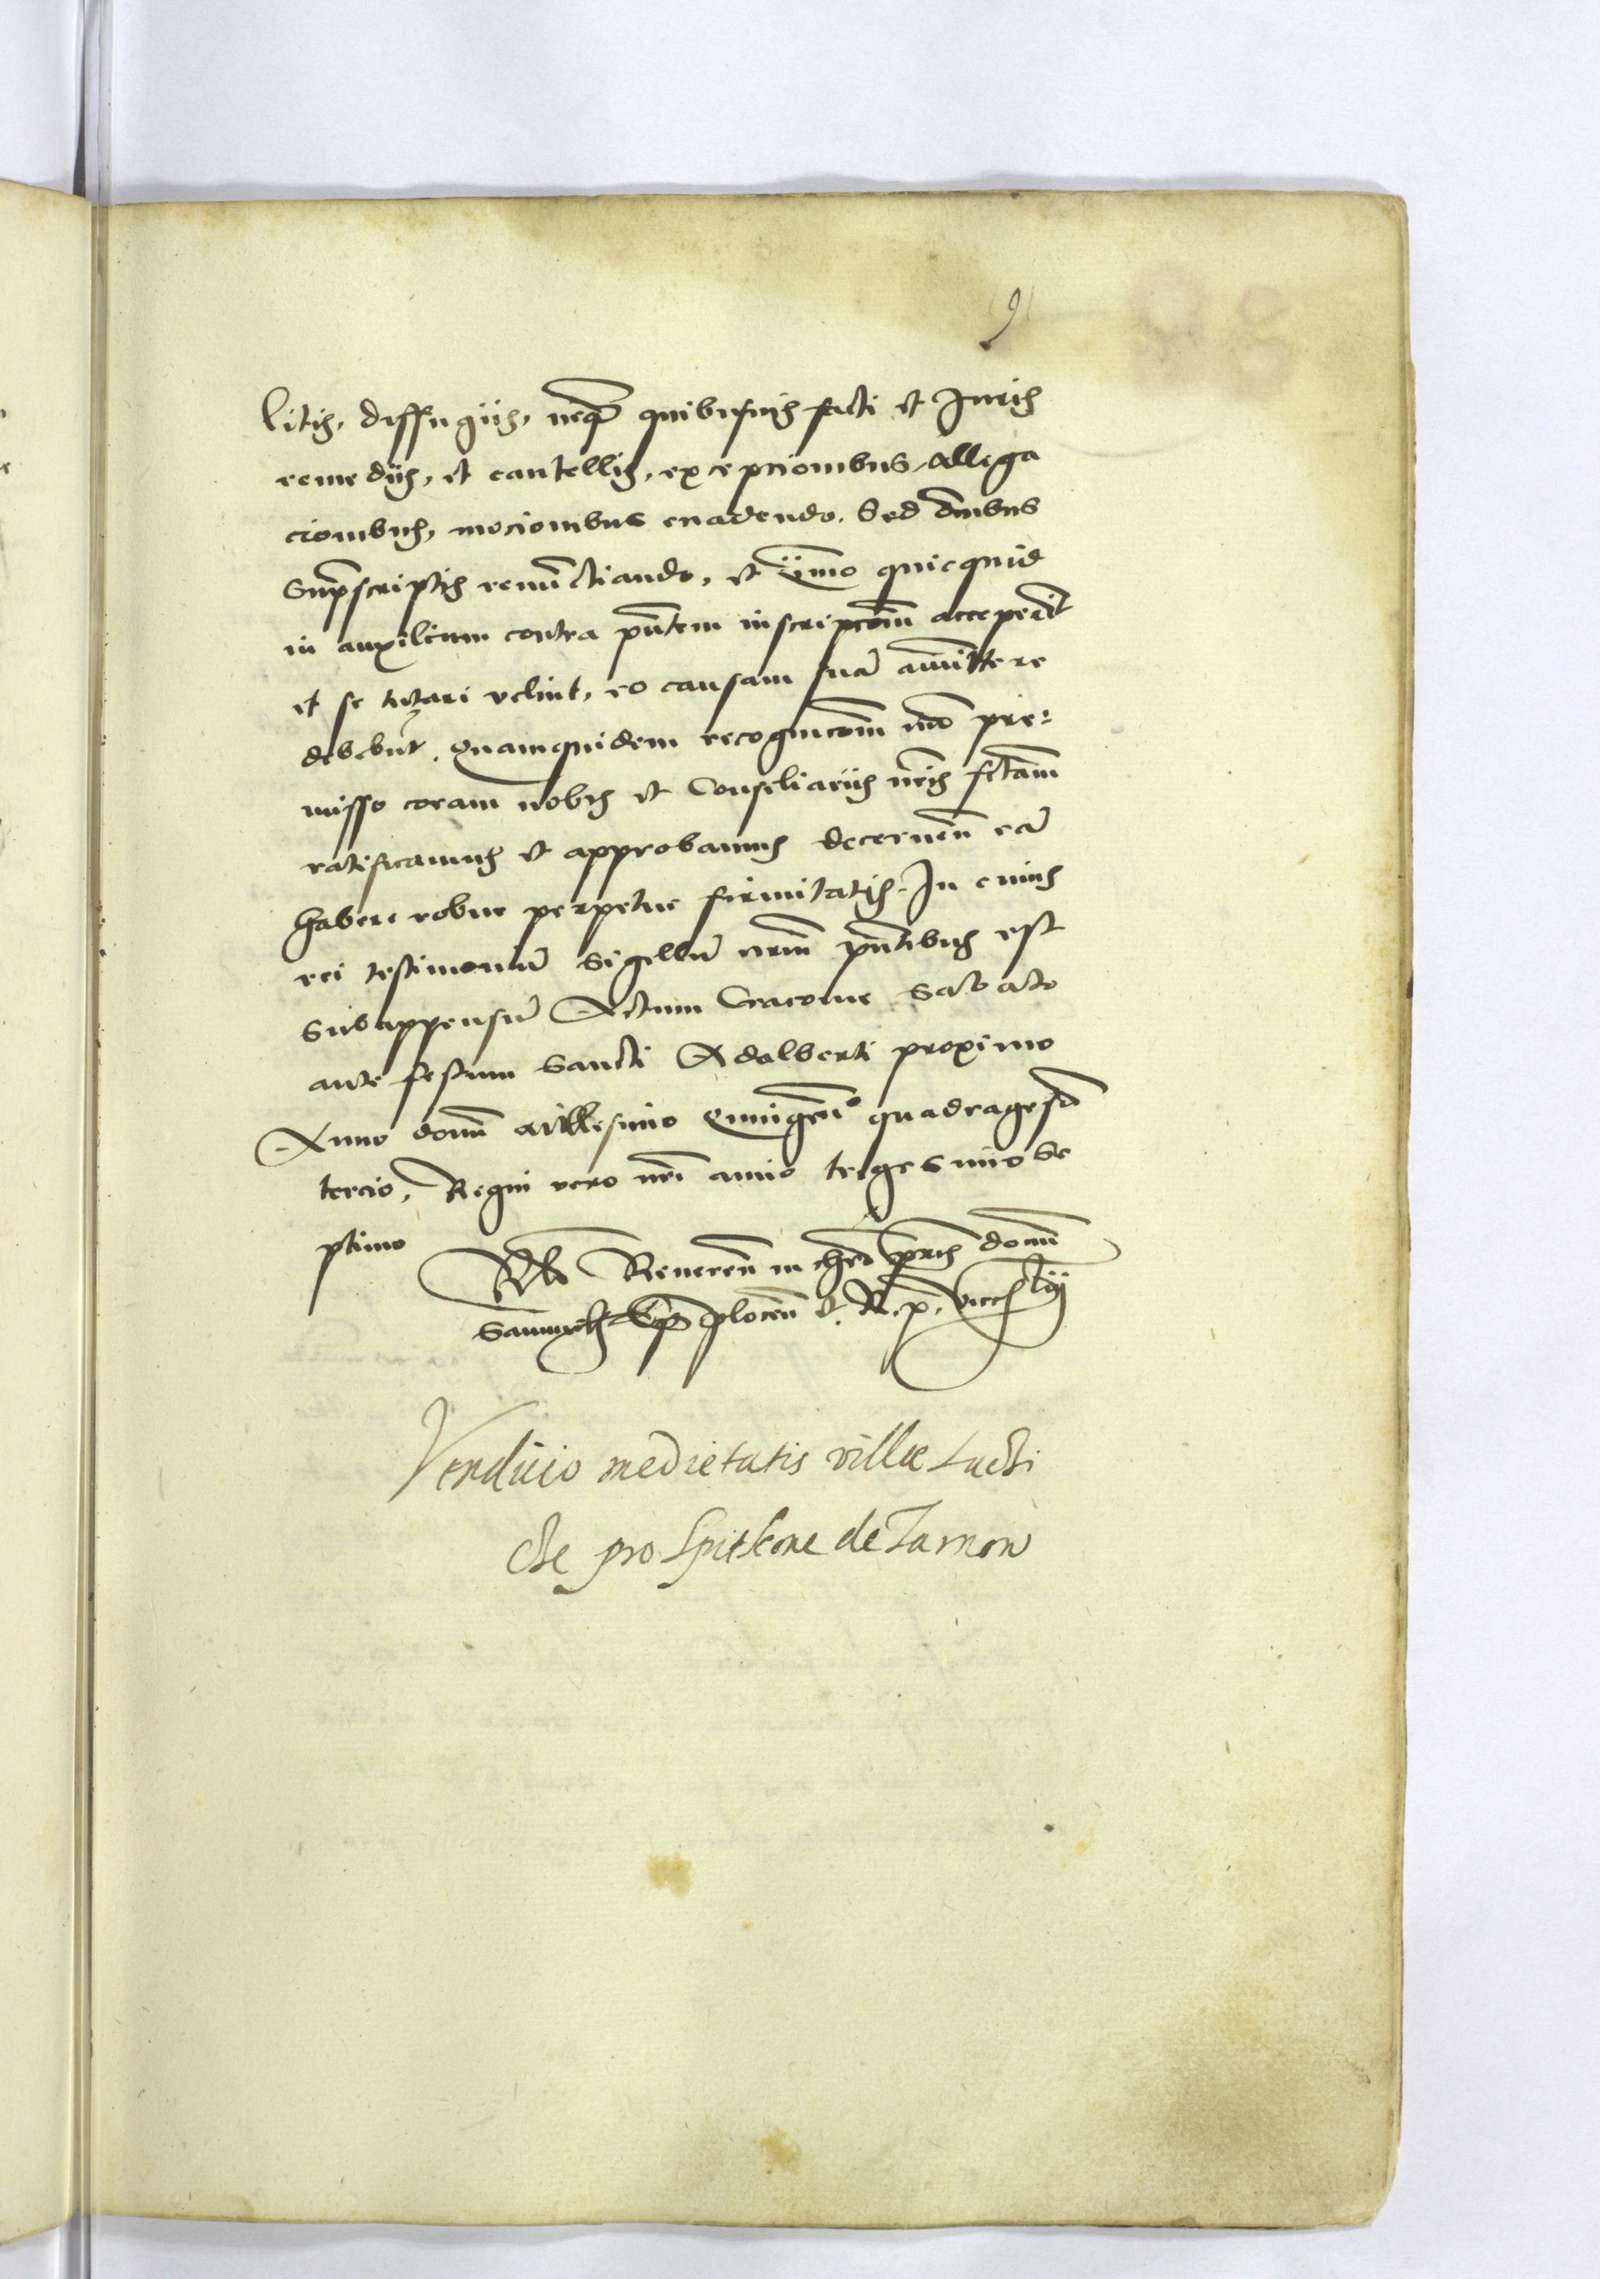 9
litis, diffugiis, neq̃ quibusuis facti et Juris
remediis, et cautellis, excepcionibus, allega
cionibus, mocionibus euadendo. Sed om̃ibus
Supͣscriptis renũctiando, et ỹmo quicquid
in auxilium contra pñtem inscripcom̃ acceperĩt
et se tutari velint, eo causam suã amittere
debebũt. Quamquidem recognicom̃ mõ pre-
misso coram nobis et Consiliariis nr̃is fctam̃
ratificamus et approbamus decerneñ eã
habere robur perpetue firmitatis. In cuius
rei testimoniũ Sigillũ nrm̃ pñtibus est
Subappensũ Actum Cracouie Sabato
ante festum Sancti Adalberti proximo
Anno domĩ Millesimo Quingeñ quadragesõ
tercio, Regni vero nrĩ anno trigesimo Se
ptimo
Rlo Revereñ in chrõ pr̃is domĩ
Samuelis Ep̃i ploceñ et R. p. vicecs̃lii
Vendicio medietatis villæ Lucsi
cse pro Spitkone de Tarnow